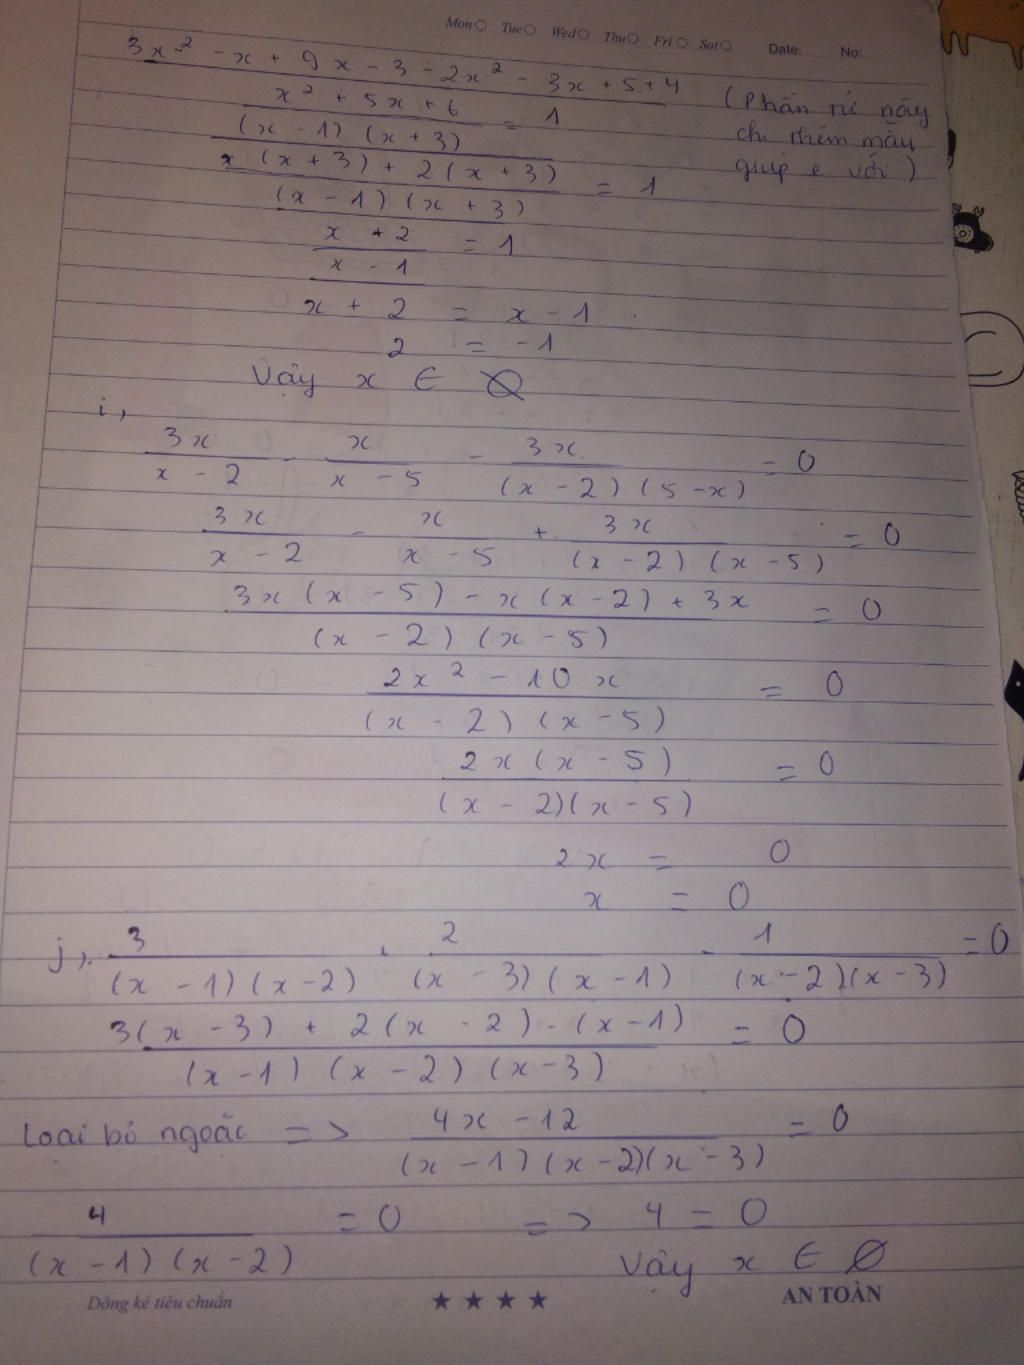 Mon Tue Wed Thu Fri Sat Date: No:
3x² - x + 9x - 3 - 2x² - 3x + 5 + 4 (Phân tử này
x² + 5x + 6 / (x - 1)(x + 3) = 1 chị thêm mấy
x(x + 3) + 2(x + 3) / (x - 1)(x + 3) = 1 giúp e với)
x + 2 / x - 1 = 1
x + 2 = x - 1
2 = -1
Vậy x ∈ ∅
i,
3x / x - 2 - x / x - 5 - 3x / (x - 2)(5 - x) = 0
3x / x - 2 - x / x - 5 + 3x / (x - 2)(x - 5) = 0
3x(x - 5) - x(x - 2) + 3x / (x - 2)(x - 5) = 0
2x² - 10x / (x - 2)(x - 5) = 0
2x(x - 5) / (x - 2)(x - 5) = 0
2x = 0
x = 0
j, 3 / (x - 1)(x - 2) + 2 / (x - 3)(x - 1) - 1 / (x - 2)(x - 3) = 0
3(x - 3) + 2(x - 2) - (x - 1) / (x - 1)(x - 2)(x - 3) = 0
Loại bỏ ngoặc => 4x - 12 / (x - 1)(x - 2)(x - 3) = 0
4 / (x - 1)(x - 2) = 0 => 4 = 0
Vậy x ∈ ∅
Dòng kẻ tiêu chuẩn ★★★★ AN TOÀN